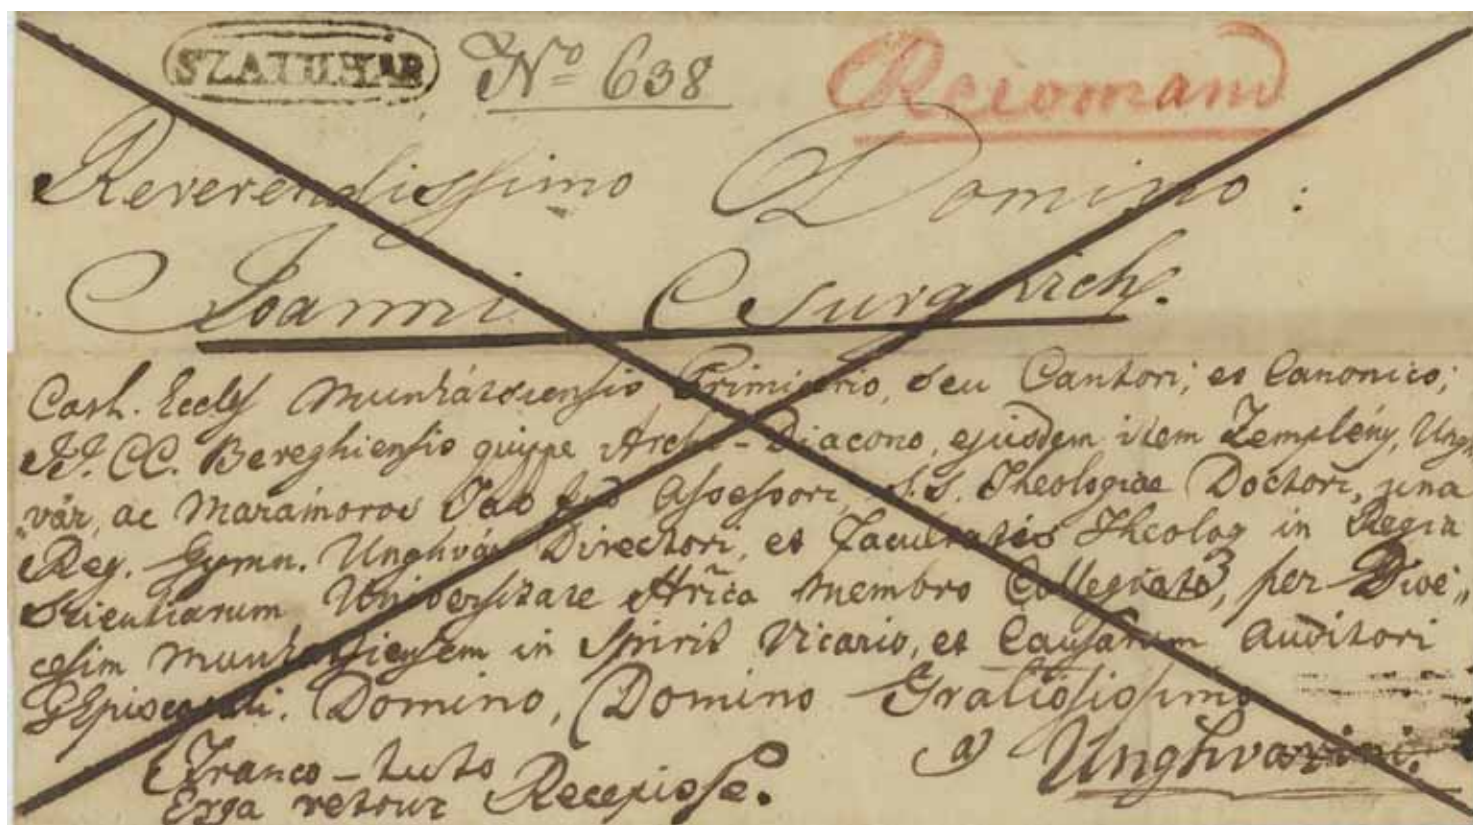 SZATHMAR Nº 638 Recomand
Reverendissimo Domino:
Joanni Csurgovich.
Cath. Eccly Munkátsiensis Primicerio, seu Cantori; et Canonico;
II. CC. Bereghiensis quippe Archi-Diacono, ejusdem item Zemplény, Ungh
vár, ac Maramoros Assessori, S.S. Theologiae Doctori, una
Reg. Gymn. Unghvár Directori, et Facultatis Theolog in Regia
Scientiarum Universitate membro Collegiato, per Dioe„
cesim Munkatsiensem in Spirit Vicario, et Causarum Auditori
GEpiscopali. Domino, Domino Gratiosissimo
Franco-tuto a Unghvarini.
Erga retour Recepisse.